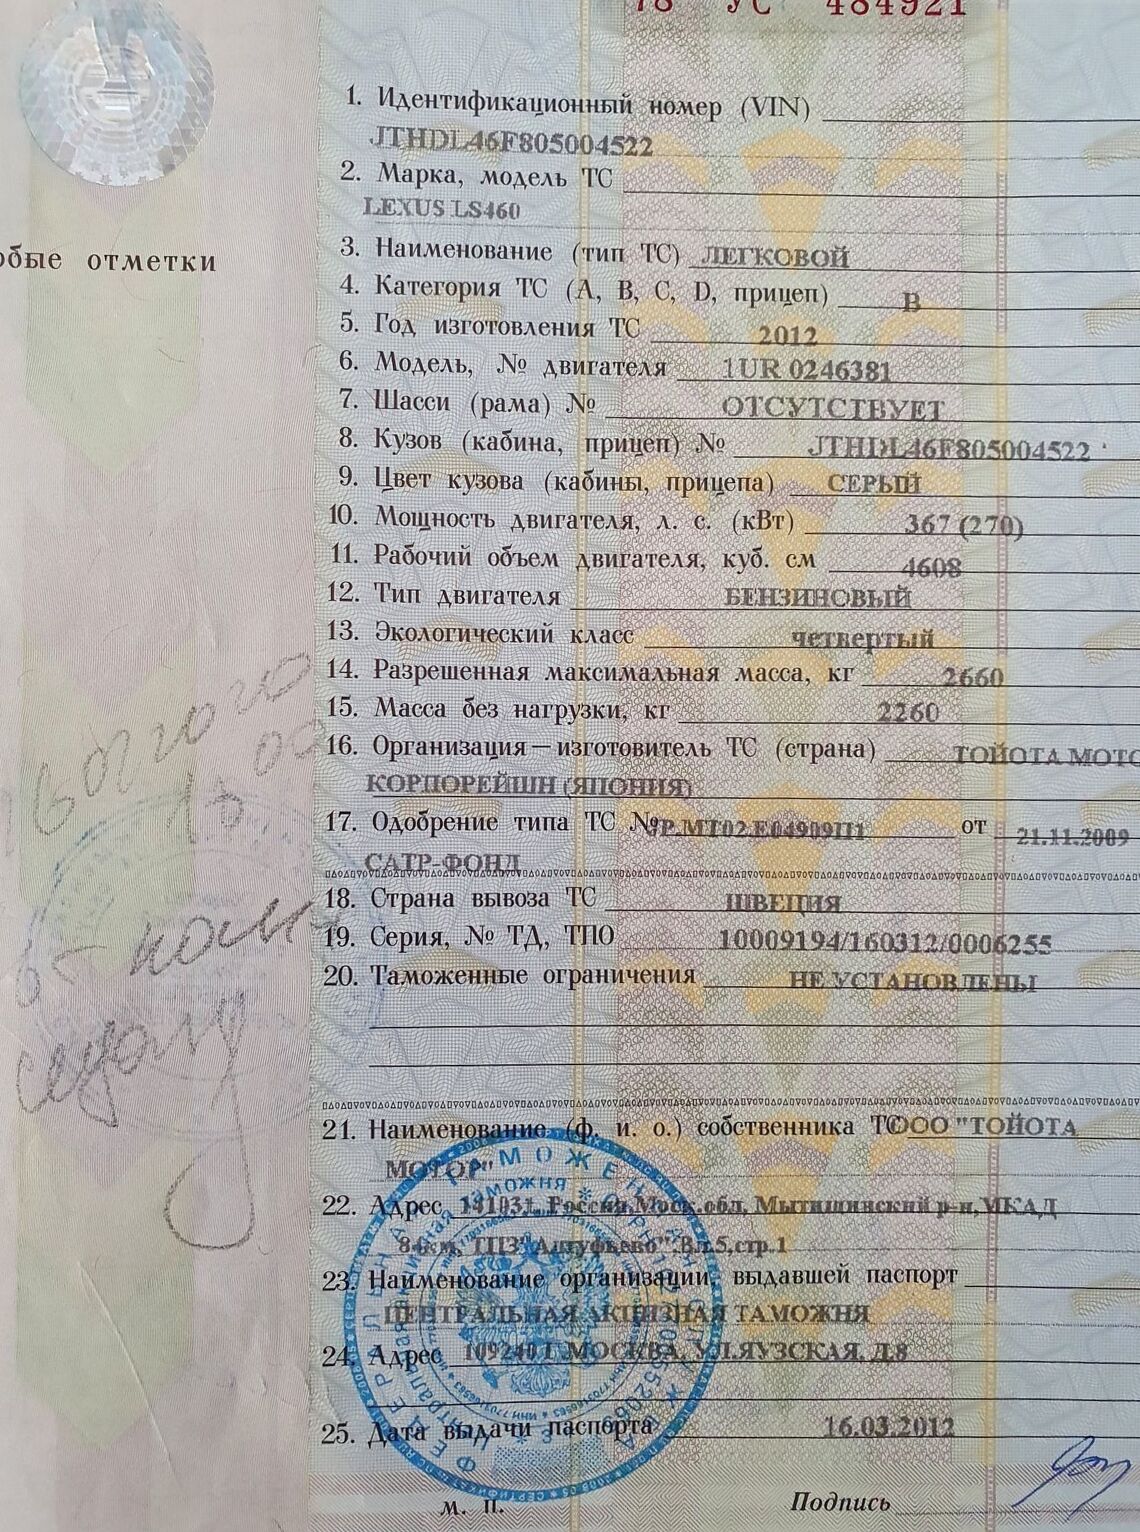 78 УС 484921
обые отметки
1. Идентификационный номер (VIN)
JTHDL46F805004522
2. Марка, модель ТС
LEXUS LS460
3. Наименование (тип ТС) ЛЕГКОВОЙ
4. Категория ТС (А, В, С, D, прицеп) В
5. Год изготовления ТС 2012
6. Модель, № двигателя 1UR 0246381
7. Шасси (рама) № ОТСУТСТВУЕТ
8. Кузов (кабина, прицеп) № JTHDL46F805004522
9. Цвет кузова (кабины, прицепа) СЕРЫЙ
10. Мощность двигателя, л. с. (кВт) 367 (270)
11. Рабочий объем двигателя, куб. см 4608
12. Тип двигателя БЕНЗИНОВЫЙ
13. Экологический класс четвертый
14. Разрешенная максимальная масса, кг 2660
15. Масса без нагрузки, кг 2260
16. Организация—изготовитель ТС (страна) ТОЙОТА МОТО
КОРПОРЕЙШН (ЯПОНИЯ)
17. Одобрение типа ТС № JP.MT02.E04909П1 от 21.11.2009
САТР-ФОНД
18. Страна вывоза ТС ШВЕЦИЯ
19. Серия, № ТД, ТПО 10009194/160312/0006255
20. Таможенные ограничения НЕ УСТАНОВЛЕНЫ
21. Наименование (ф. и. о.) собственника ТС ООО "ТОЙОТА
МОТОР"
22. Адрес 141031, Россия,Моск.обл, Мытищинский р-н,МКАД
84км, ТПЗ"Алтуфьево",Вл.5,стр.1
23. Наименование организации, выдавшей паспорт
ЦЕНТРАЛЬНАЯ АКЦИЗНАЯ ТАМОЖНЯ
24. Адрес 109240 Г. МОСКВА, УЛ.ЯУЗСКАЯ, Д.8
25. Дата выдачи паспорта 16.03.2012
м. п. Подпись